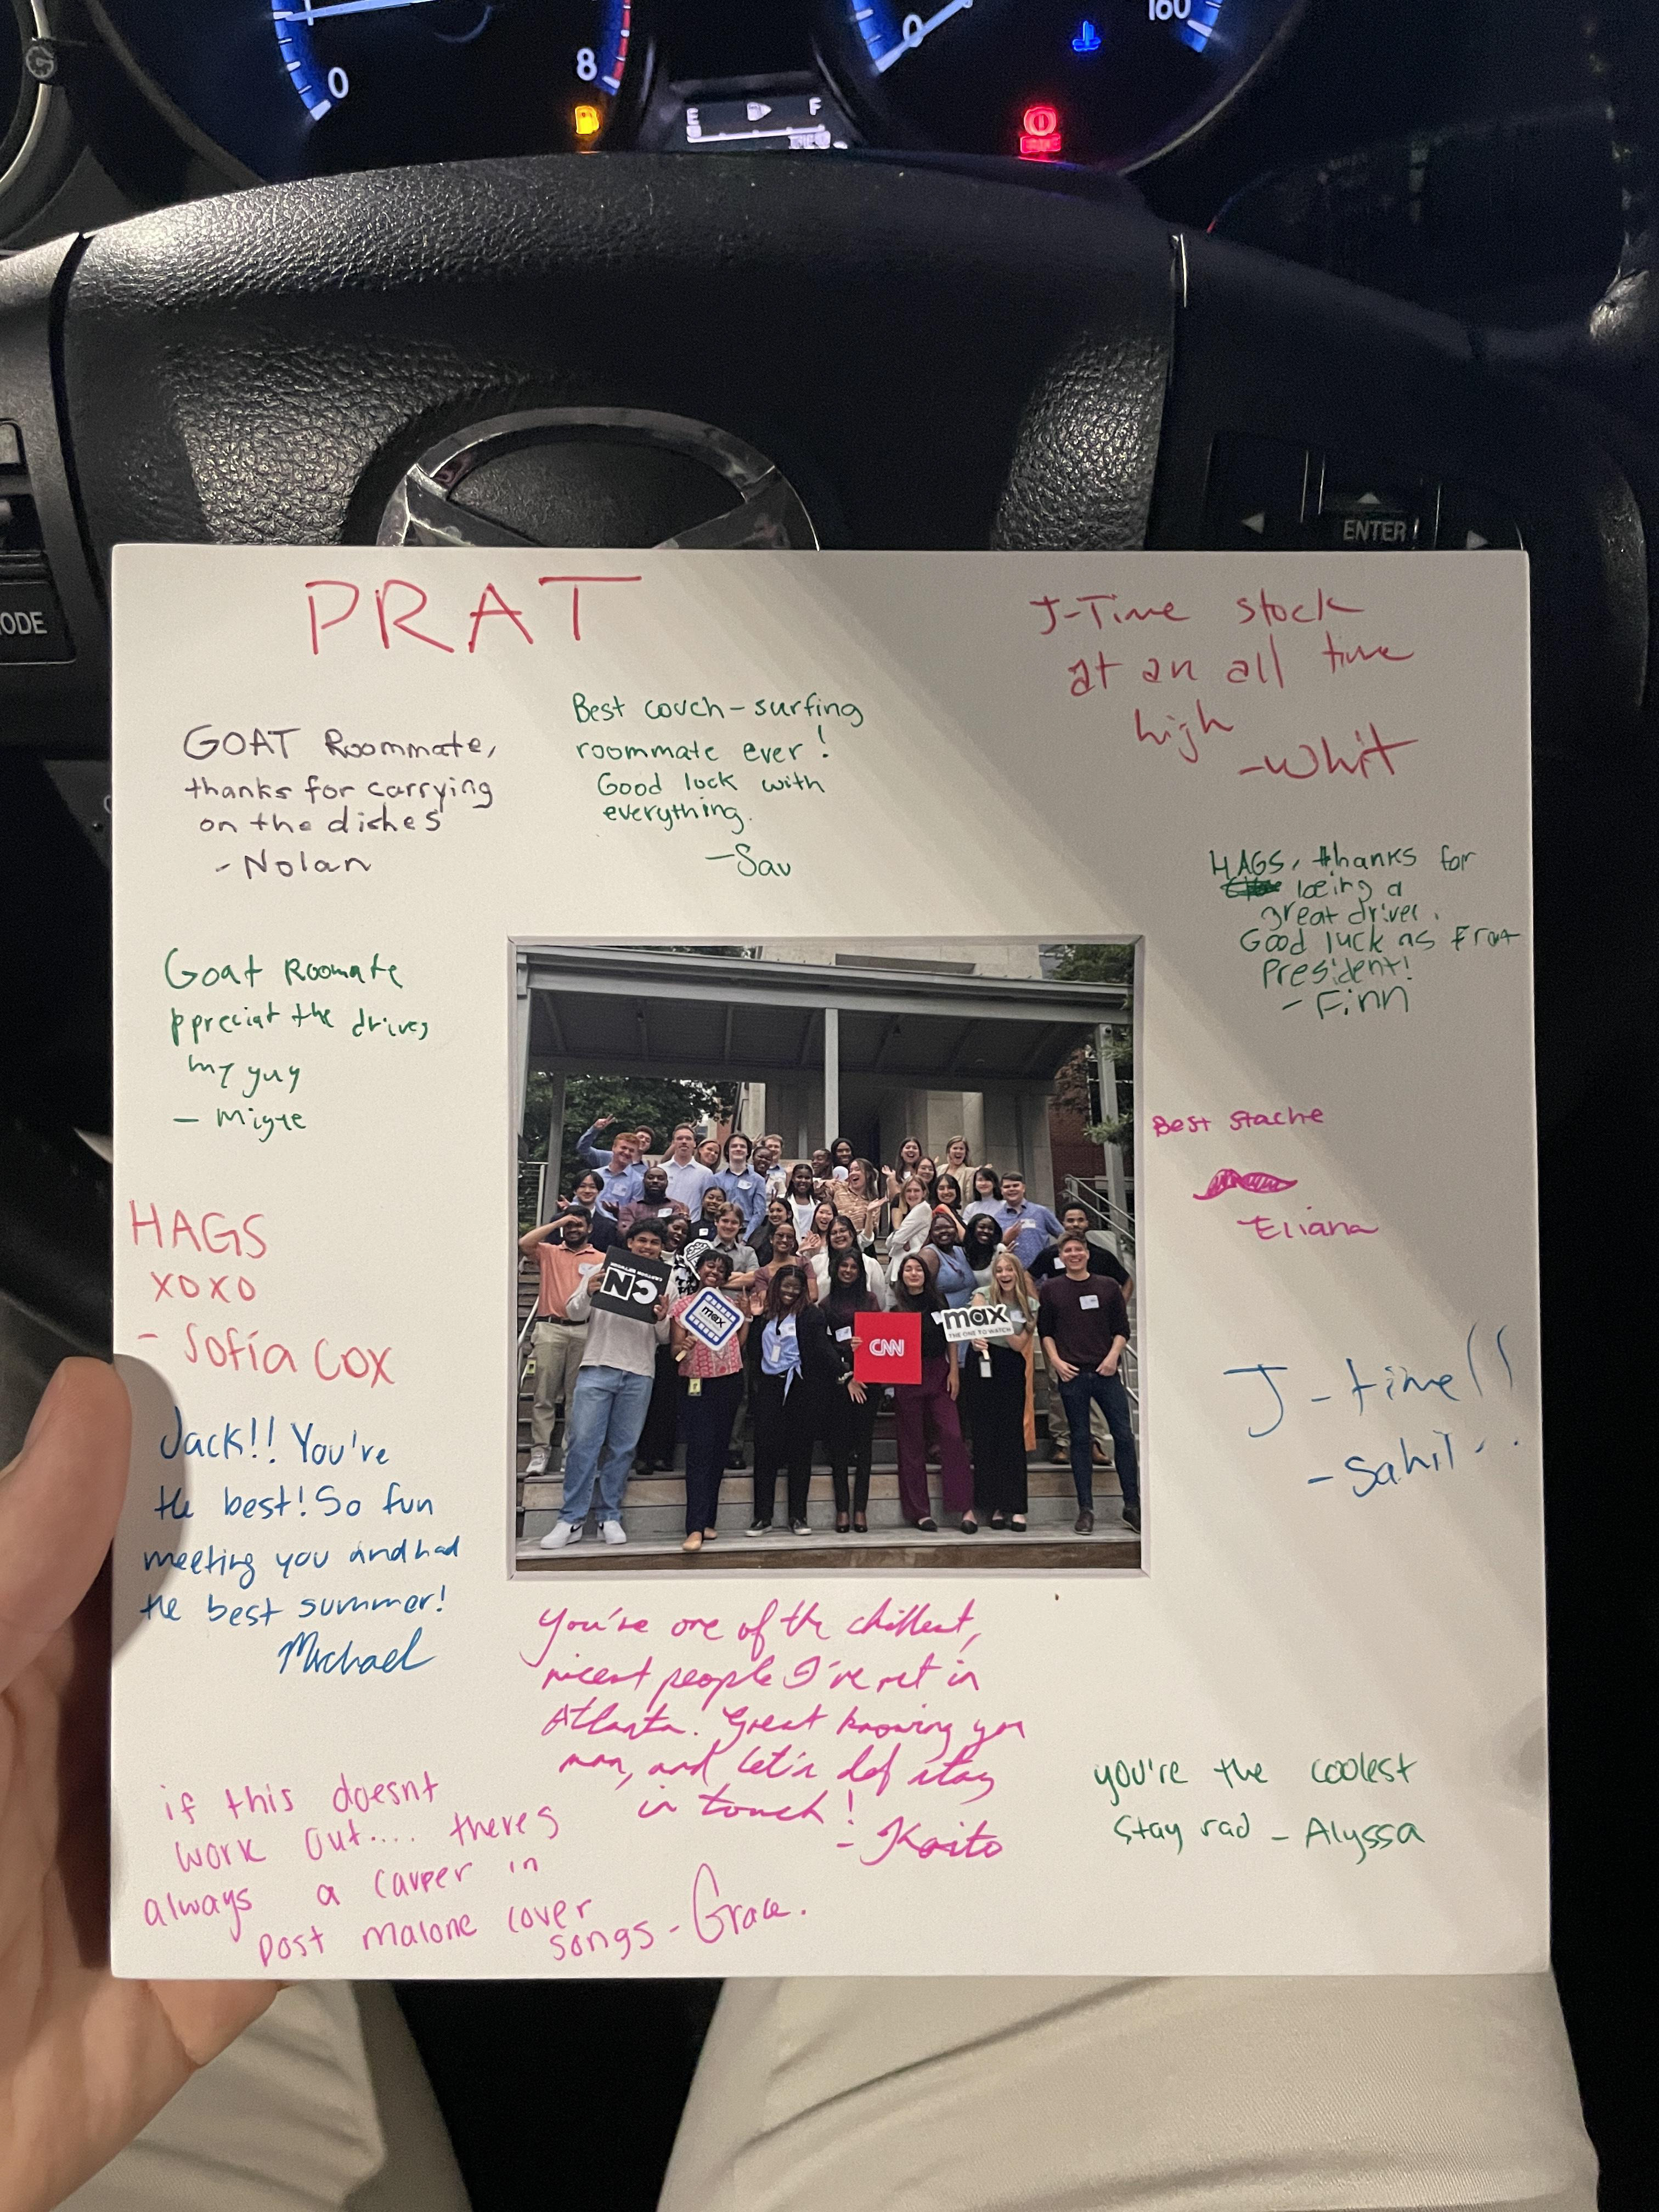 0
8
E
F
0
160
ENTER
ODE
PRAT
J-Time stock
at an all time
high
-Whit
GOAT Roommate,
thanks for carrying
on the dishes
- Nolan
Best couch-surfing
roommate ever!
Good luck with
everything.
-Sav
HAGS, thanks for
being a
great driver.
Good luck as Frat
President!
- Finn
Goat Roomate
ppreciat the drives
my guy
Best stache
Eliana
HAGS
XOXO
- Sofía Cox
CARTOON NETWORK
CN
max
CNN
max
THE ONE TO WATCH
J-time!!
- Sahil
Jack!! You're
the best! So fun
meeting you and had
the best summer!
Michael
You're one of the chillest,
nicest people I've met in
Atlanta. Great knowing you
man, and let's def stay
in touch!
- Kaito
you're the coolest
stay rad - Alyssa
if this doesnt
work out.... theres
always a career in
post malone cover
songs - Grace.